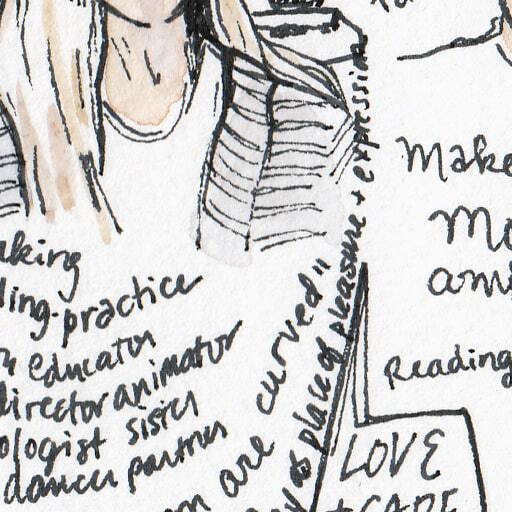 aking
ling-practice
educator
director animator
ologist sister
dancer partner
are curved"
as place of pleasure + expression
Make
Mo
am
Reading
LOVE
+ CARE